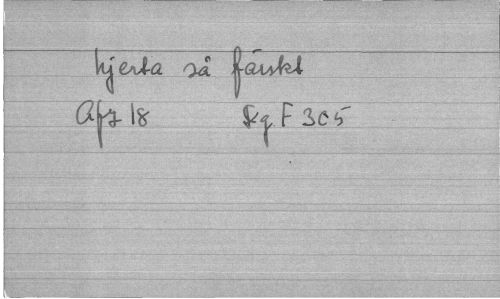 hjerta så färskt
Afz 18 Sg F 305